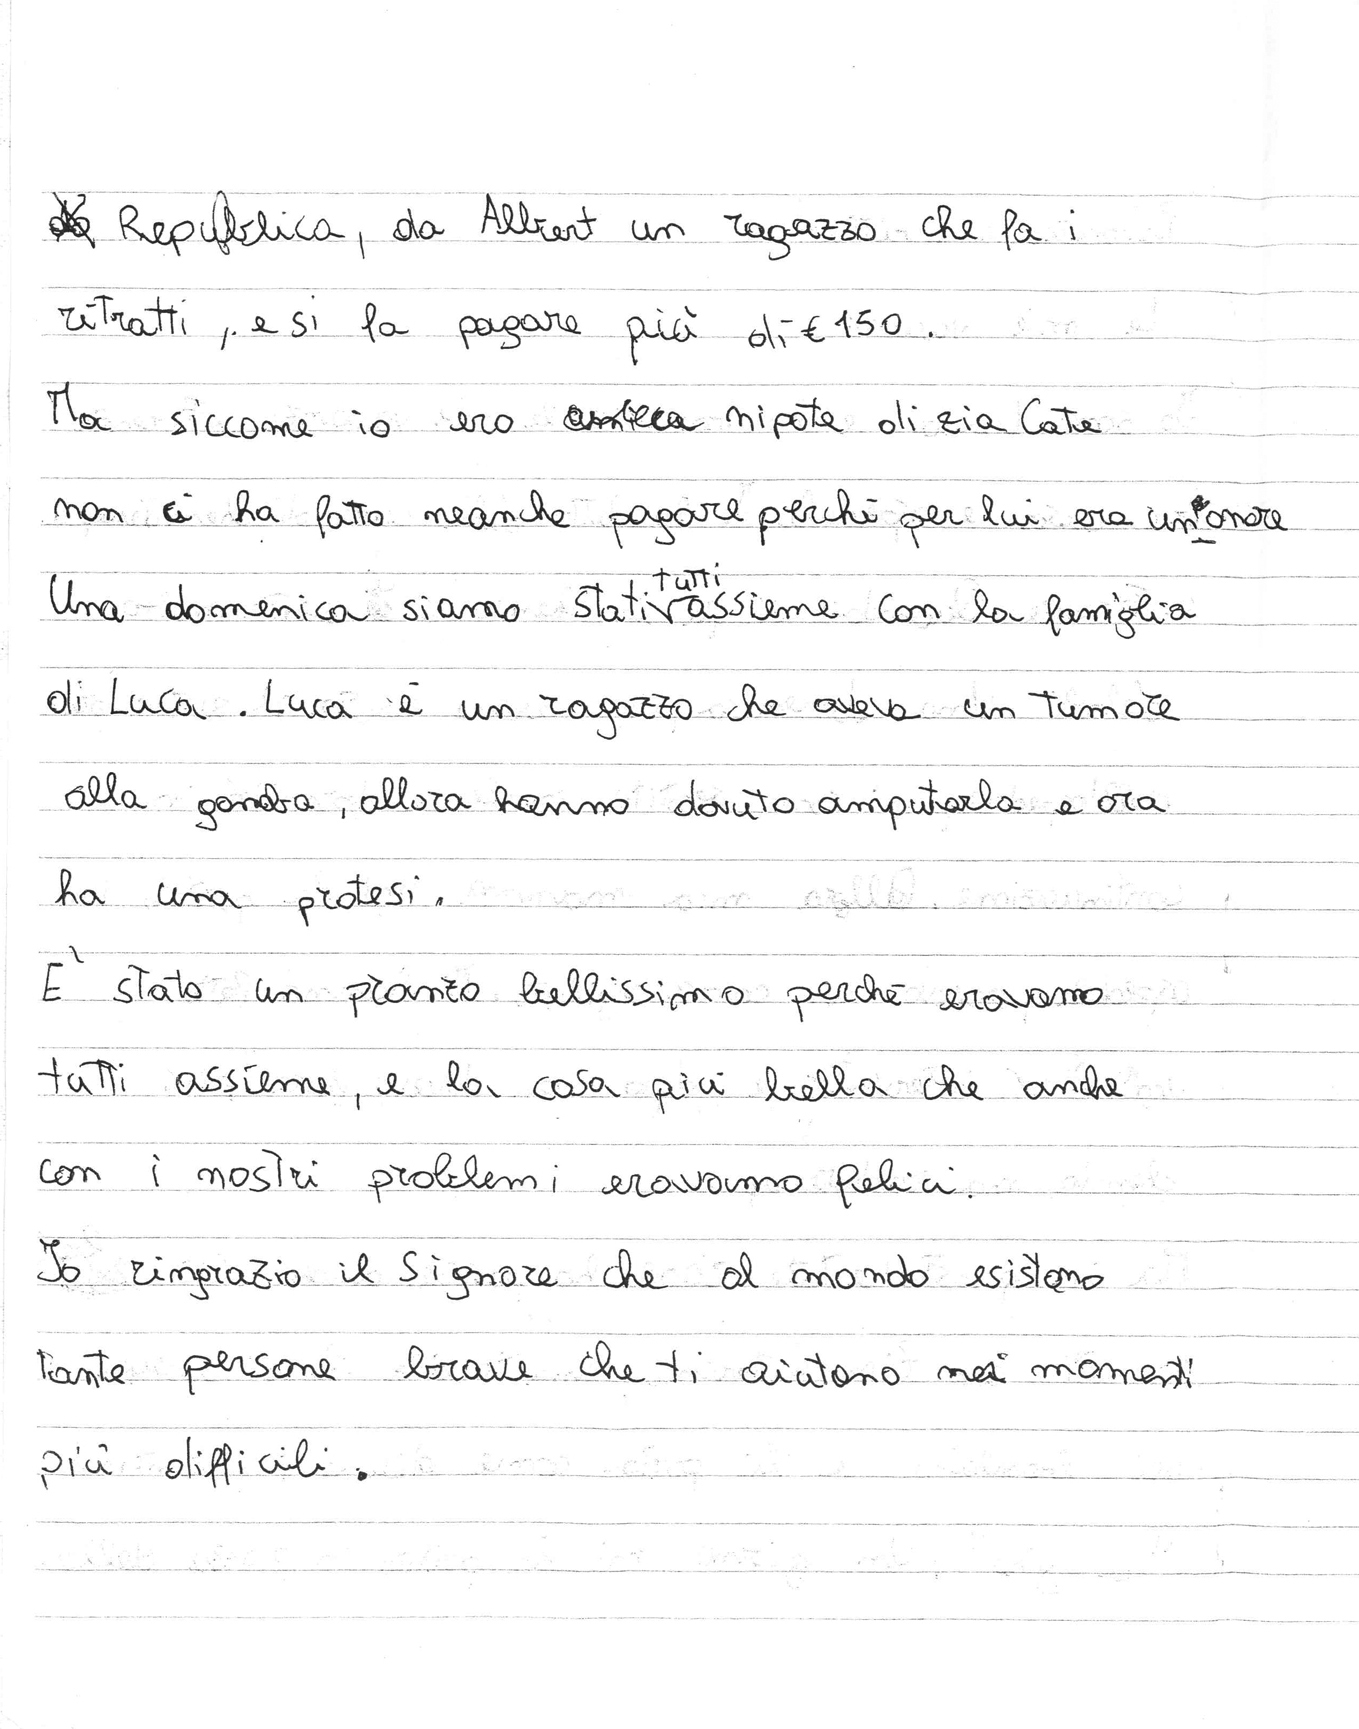 Repubblica, da Albert un ragazzo che fa i
ritratti, e si fa pagare più di € 150.
Ma siccome io ero nipote di zia Cate
non ci ha fatto neanche pagare perchè per lui era un onore
Una domenica siamo stati tutti assieme con la famiglia
di Luca. Luca è un ragazzo che aveva un tumore
alla gamba, allora hanno dovuto amputarla e ora
ha una protesi.
E' stato un pranzo bellissimo perchè eravamo
tutti assieme, e la cosa più bella che anche
con i nostri problemi eravamo felici.
Io ringrazio il Signore che al mondo esistono
tante persone brave che ti aiutano nei momenti
più difficili.